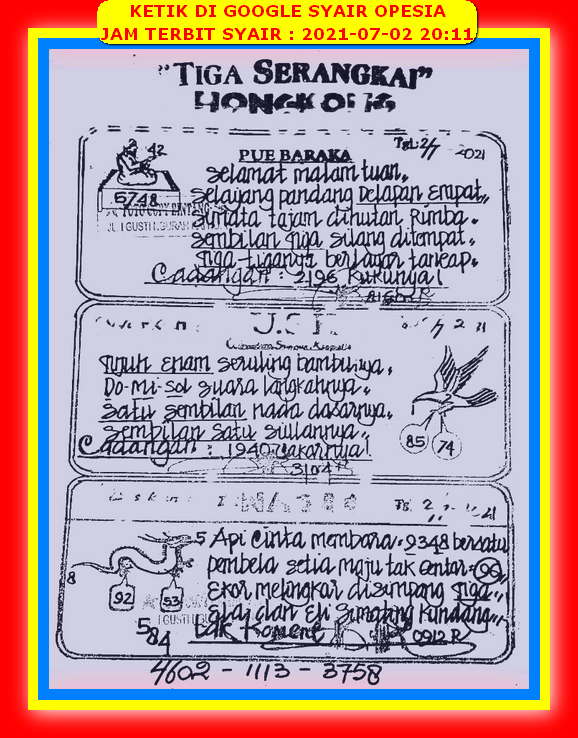 KETIK DI GOOGLE SYAIR OPESIA
JAM TERBIT SYAIR : 2021-07-02 20:11
"TIGA SERANGKAI"
HONGKONG
PUE BARAKA
Tgl: 2/7 2021
42
6748
JL. I GUSTI NGURAH
Selamat malam tuan,
Selayang pandang Delapan Empat,,
Sunata tajam dihutan Rimba.
Sembilan Tiga silang ditempat,
Tiga-tiganya berlayar
Cadangan : 2196 Kukunya!
U.S.
Tujuh Enam seruling bambunya,
Do-mi-sol suara langkahnya.
Satu Sembilan nada dasarnya.
Sembilan Satu siulannya.
Cadangan : 1940 cakarnya!
3104
85
74
5
8
92
93
584
I GUSTI
Api Cinta membara. 2348 bersatu
pembela setia maju tak Gentar. 96
Ekor melingkar disimpang Tiga,,
dan Eli Simating Kundang,,
tak Koment
0912 R
4602 - 1113 - 3758